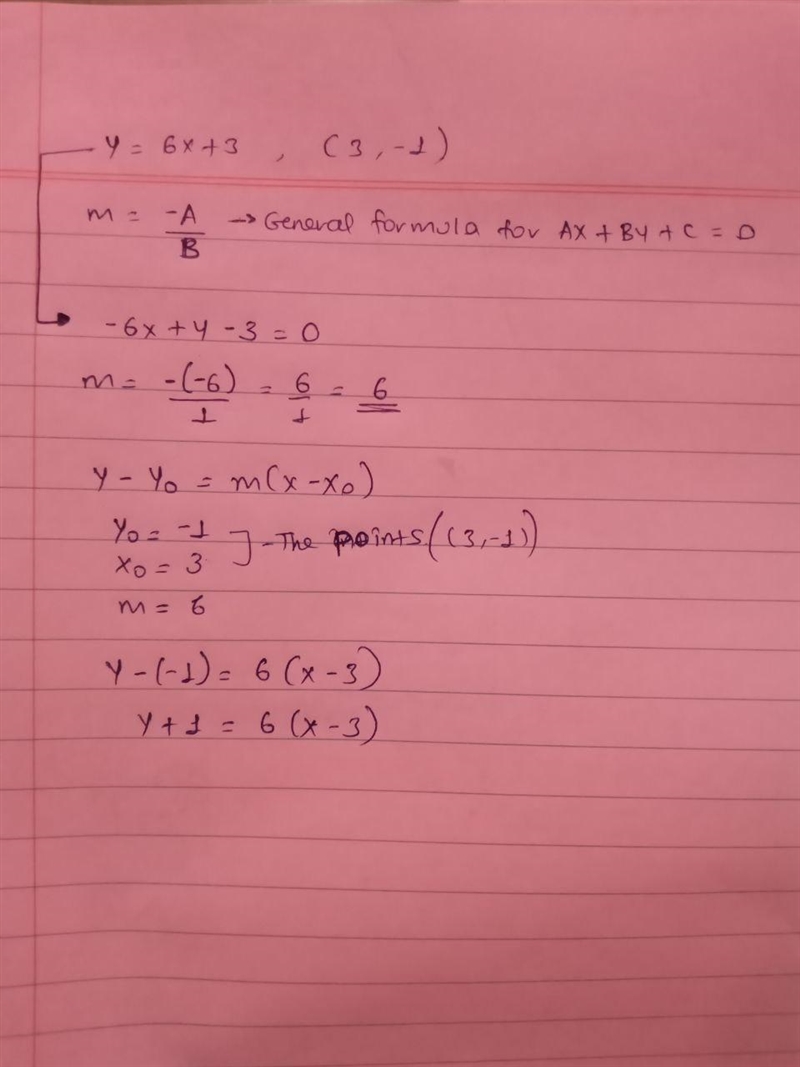 y = 6x + 3 , (3, -1)
m = -A/B → General formula for Ax + By + C = 0
-6x + y - 3 = 0
m = -(-6)/1 = 6/1 = 6
y - y₀ = m(x - x₀)
y₀ = -1
x₀ = 3 ] - The points ((3, -1))
m = 6
y - (-1) = 6 (x - 3)
y + 1 = 6 (x - 3)